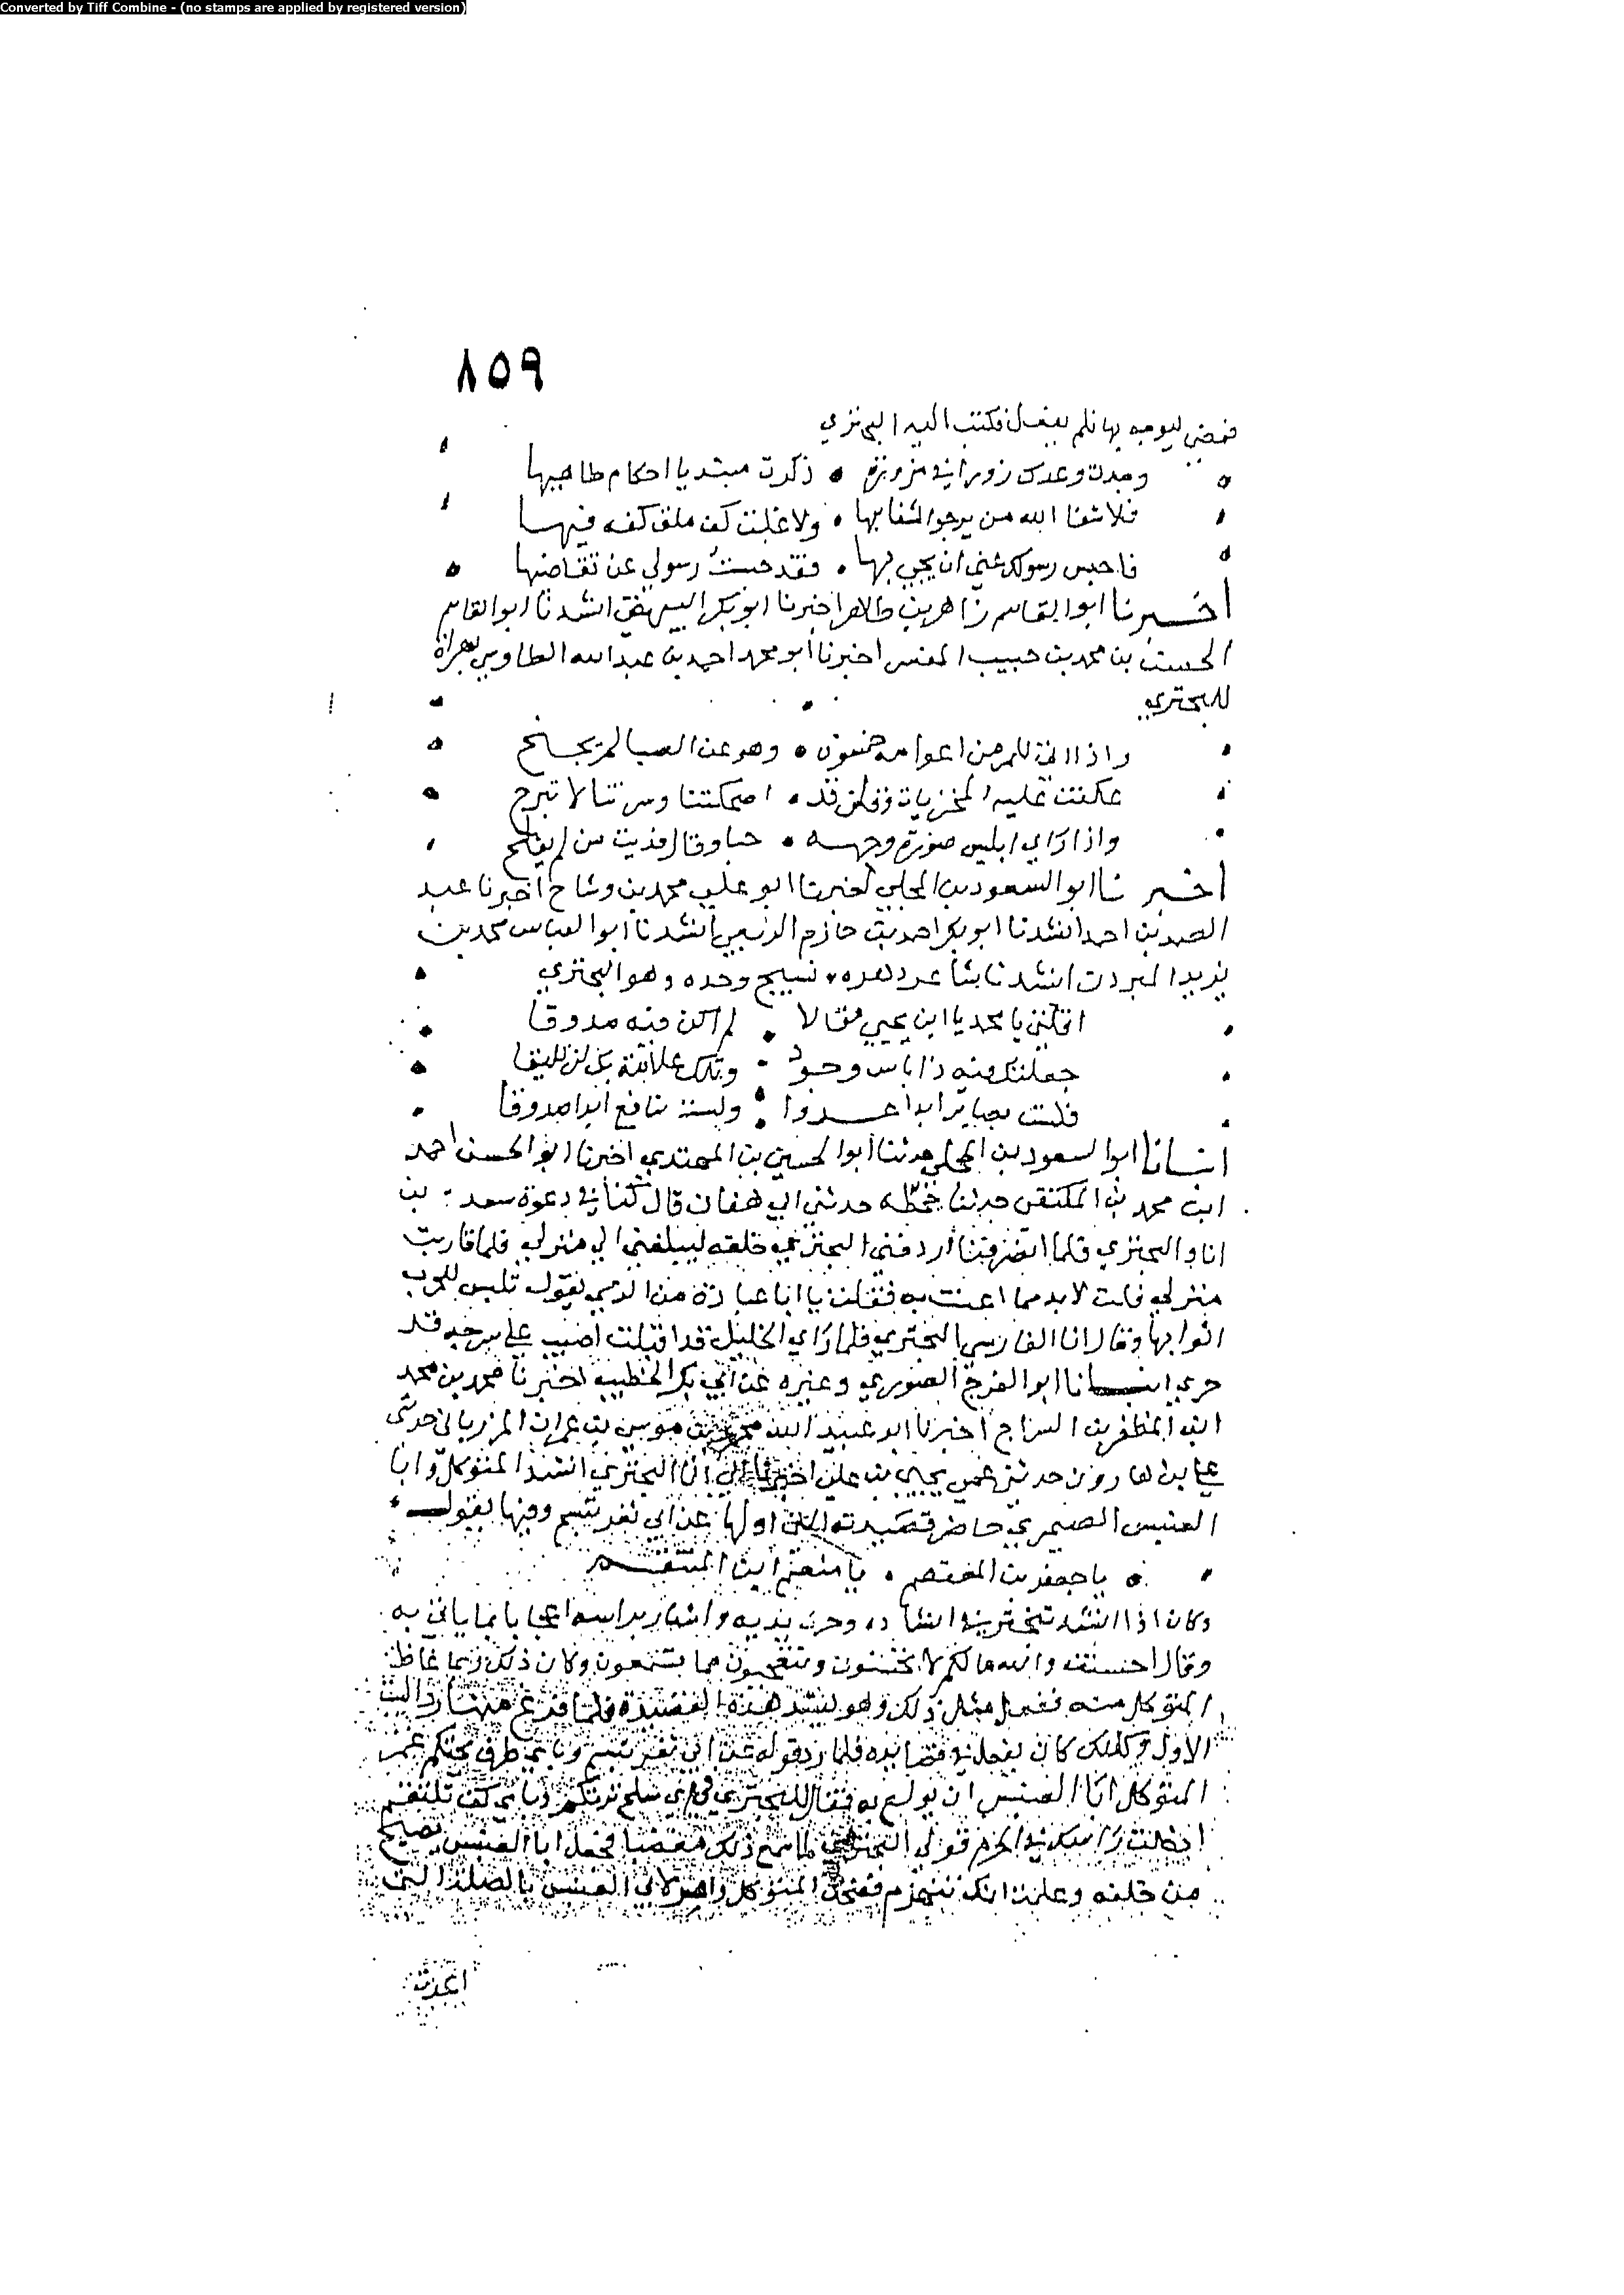 Converted by Tiff Combine - (no stamps are applied by registered version)
٨٥٩
فمضى ليوجه بها فلم يفعل فكتب اليه البحتري
وجدت وعدك زورا في مزورة • ذكرت مبتديا احكام طاهيها
فلا شفا الله من يرجو الشفا بها • ولا علت كف ملق كفه فيها
فاحبس رسولك عني ان يجي بها • فقد حبست رسولي عن تقاضيها
اخبرنا ابو القاسم زاهر بن طاهر اخبرنا ابو بكر البيهقي انشدنا ابو القاسم
الحسن بن محمد بن حبيب المفسر اخبرنا ابو محمد احمد بن عبد الله بهراة
للبحتري
واذا للمرء من اعوامه • وهو عن الصبا لم يجنح
عكفت عليه المخزيات وقلن قد • اضحكتنا وسررتنا لا تبرح
واذا راي ابليس صورة وجهه • حيا وقال فديت من لم يفلح
اخبرنا ابو السعود بن المجلي اخبرنا ابو علي محمد بن وشاح اخبرنا عبد
الصمد بن احمد انشدنا ابو بكر احمد بن حازم انشدنا ابو العباس محمد بن
يزيد المبرد انشدنا شاعر دهره ونسيج وحده وهو البحتري
يا محمد يا ابن يحيى مقالا • لم اكن فيه صدوقا
جعلتك فيه ذا باس وجود • وتلك علاقة بك لن تليقا
فلست بضاير ابدا عدوا • ولست بنافع ابدا صدوقا
انبانا ابو السعود بن المجلي حدثنا ابو الحسين بن المهتدي اخبرنا ابو الحسن احمد
ابن محمد بن المكتفي حدثنا جحظة حدثني ابو هفان قال كنا في دعوة سعد بن
انا والبحتري فلما انصرفنا اردفني البحتري خلفه ليبلغني الى منزلي فلما قاربت
منزلي قلت لا بد مما اعبث به فقلت يا ابا عبادة من الذي يقول تلبس للحرب
اثوابها وقال انا الفارس البحتري فلما راي الخيل قد اقبلت على سرجه قد
خري انبانا ابو الفرج الصوري وغيره عن ابي بكر الخطيب اخبرنا محمد بن محمد
ابن المظفر بن السراج اخبرنا ابو عبيد الله محمد بن موسى بن عمران المرزباني حدثني
علي بن هارون حدثني عمي يحيى بن علي اخبرنا ابي ان البحتري انشد المتوكل وابا
العنبس الصيمري حاضر قصيدته التي اولها عن اي ثغر تبتسم وفيها يقول
يا جعفر بن المعتصم • يا منعم ابن المنتقم
وكان اذا انشد تبختر في انشاده وحرك يديه واشار براسه اعجابا بما ياتي به
وقال احسنت والله ما لكم لا تحسنون وتتعجبون مما تسمعون وكان ذلك ربما غاظ
المتوكل منه ففعل مثل ذلك وهو ينشد هذه القصيدة فلما فرغ منها رد البيت
الاول وكذلك كان يفعل في قصايده فلما رد قوله عن اي ثغر تبتسم وباي طرف تحتكم غمز
المتوكل ابا العنبس ان يولع به فقال للبحتري في اي سلح ترتطم وباي كف تلتقم
ادخلت راسك في الحرم فولى البحتري لما سمع ذلك مغضبا فجعل ابا العنبس يصيح
من خلفه وعلمت انك تنهزم فضحك المتوكل وامر لابي العنبس بالصلة التي